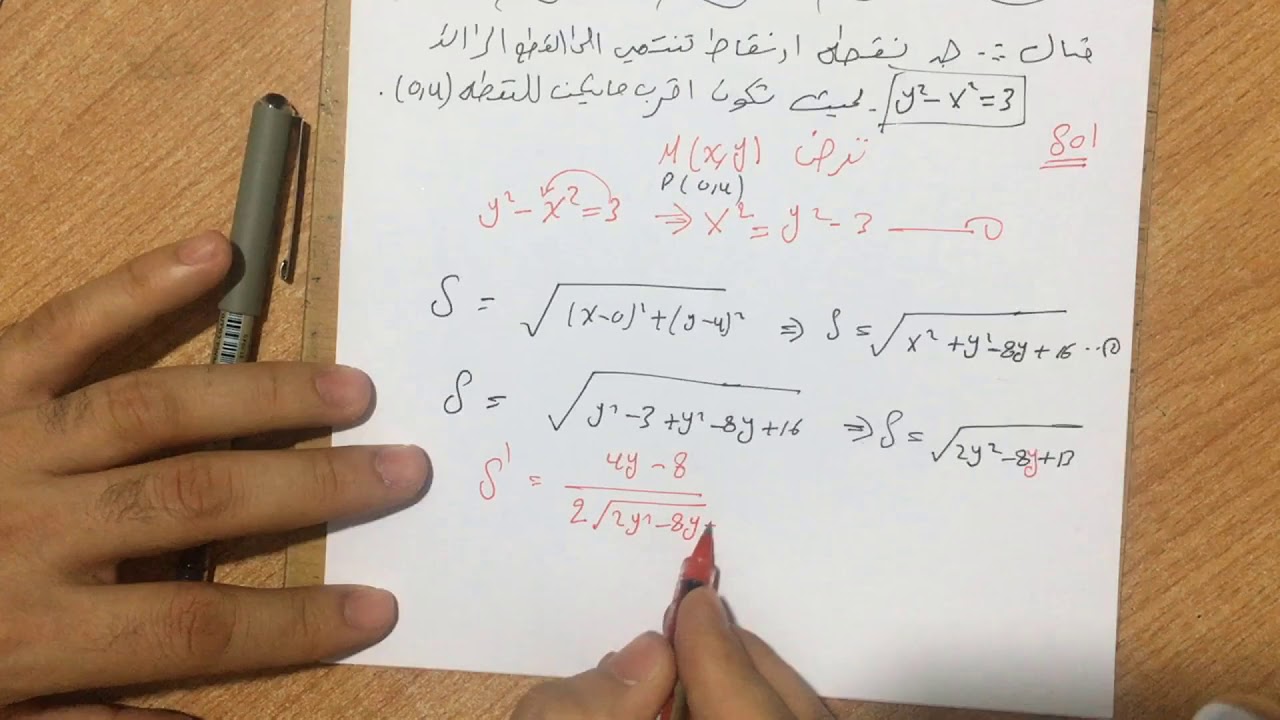 مثال :- جد نقطة او نقاط تنتمي الى القطع الزائد
y² - x² = 3 بحيث تكون اقرب ما يمكن للنقطة (0,4).
Sol نفرض M(x,y)
P(0,4)
y² - x² = 3 ⇒ x² = y² - 3 —— ①
S = √(x-0)² + (y-4)² ⇒ S = √x² + y² - 8y + 16 ...②
S = √y² - 3 + y² - 8y + 16 ⇒ S = √2y² - 8y + 13
S' = 4y - 8
2√2y² - 8y +